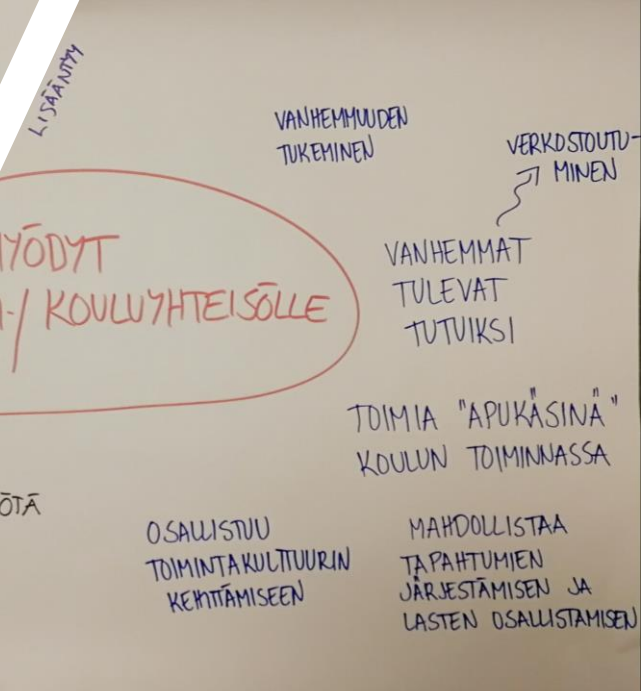 LISÄÄNTYY
VANHEMMUUDEN
TUKEMINEN
VERKOSTOUTU-
MINEN
YÖDYT
-/ KOULUYHTEISÖLLE
VANHEMMAT
TULEVAT
TUTUIKSI
TOIMIA "APUKÄSINÄ"
KOULUN TOIMINNASSA
ÖTÄ
OSALLISTUU
TOIMINTAKULTTUURIN
KEHITTÄMISEEN
MAHDOLLISTAA
TAPAHTUMIEN
JÄRJESTÄMISEN JA
LASTEN OSALLISTAMISEN